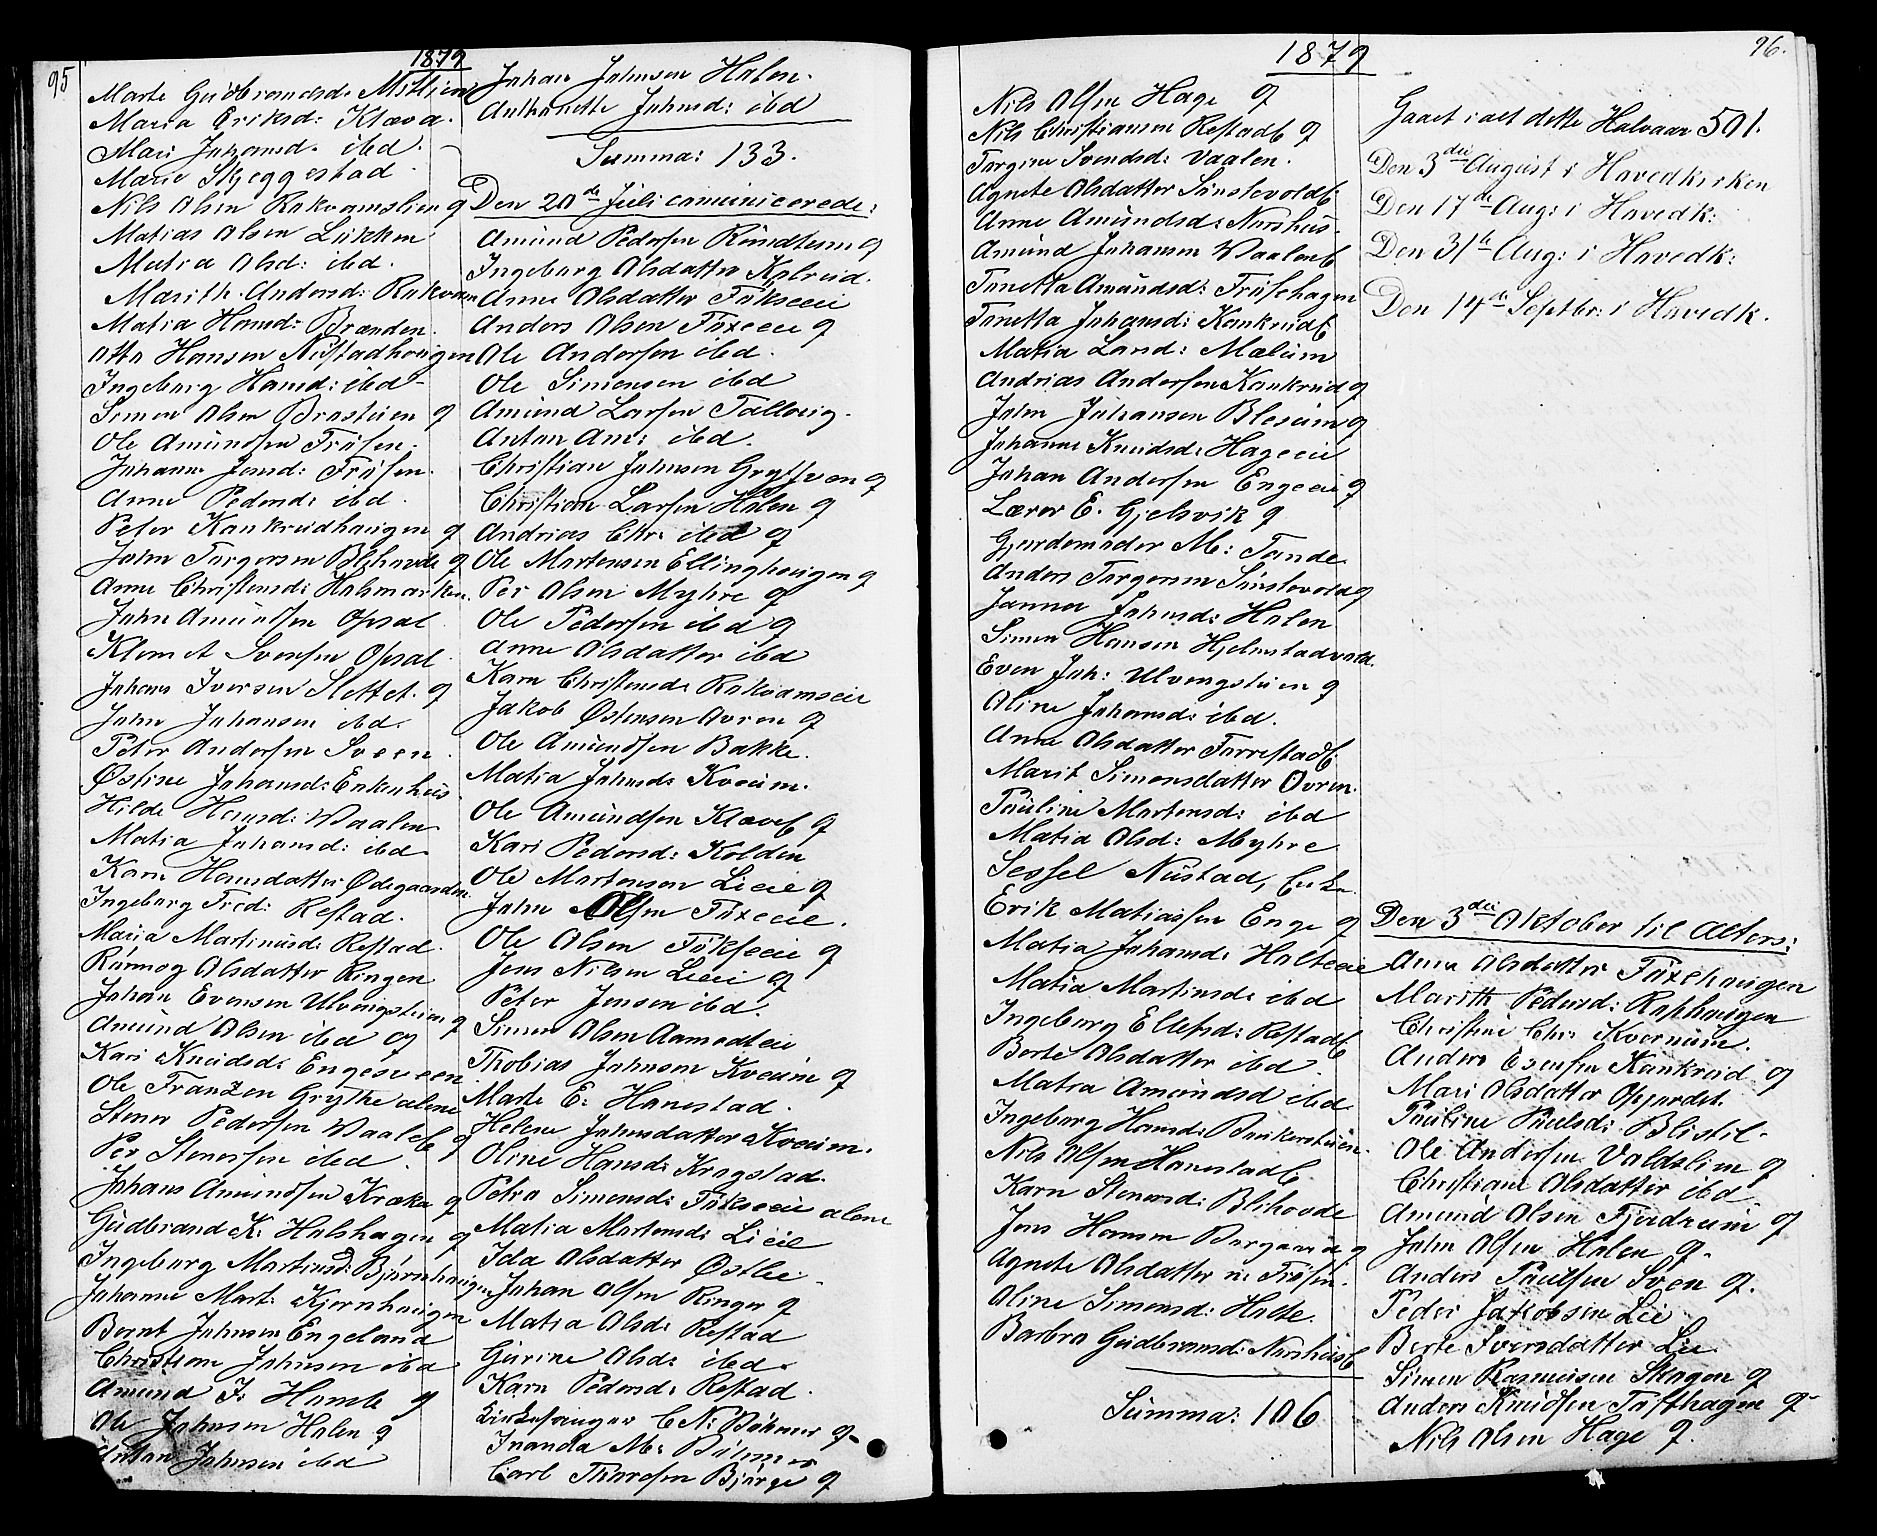 95
1879
Marte Gudbrandsd: Mitlien
Maria Eriksd: Klæva.
Mari Johansd. ibd.
Marie Skjeggestad.
Nils Olsen Rakvamslien q
Matias Olsen Løkken
Matia Olsd: ibd.
Marith Andersd: Rakvam
Matia Hansd: Brænden.
Otto Hansen Nustadhougen
Ingeborg Hansd: ibd
Simen Olsen q
Ole Amundsen Frøsen.
Johanne Jonsd: Frøsen.
Anne Pedersd: ibd.
Peter Kankrudhaugen q
John Torgersen Blihovde q
Anne Christensd: Holsmarken.
John Amundsen Opsal
Klemet Svensen Opsal
Johans Iversen Slettet. q
John Johansen ibd.
Peter Andersen Sveen.
Østine Johansd: Enkenhus
Hilde Hansd: Waalen
Matia Johansd: ibd.
Karn Hansdatter Ødegaarden
Ingeborg Fred: Restad.
Maria Martinusd: Restad.
Rønnog Olsdatter Ringen
Johan Evensen Ulvengslien q
Amund Olsen ibd q
Kari Knudsd: Engesveen
Ole Franzen Grythe alene
Stener Pedersen Waaleb q
Per Stenersen ibd.
Johans Amundsen Kræke q
Gudbrand K: Holshagen q
Ingeborg Martinsd: Bjørnhaugen
Johanne Mart: Kjernhaugen
Bernt Johnsen Engeland
Christian Johnsen ibd.
Amund J: q
Ole Johnsen Holen q
Anton Johnsen ibd
Johan Johnsen Holen.
Anthonette Johnsd: ibd
Summa: 133.
Den 20de Juli comunicerede:
Amund Pedersen q
Ingeborg Olsdatter Kalrud.
Anne Olsdatter Fokseeie
Anders Olsen Foxeeie q
Ole Andersen ibd.
Ole Simensen ibd
Amund Larsen Talloug.
Anton Am: ibd.
Christian Johnsen q
Christian Larsen Holen q
Andrias Chr: ibd q
Ole Martensen Ellinghougen q
Per Olsen Myhre q
Ole Pedersen ibd q
Anne Olsdatter ibd
Karn Christensd: Rakvamseie
Jakob Østensen Ovren q
Ole Amundsen Bakke.
Matia Johnsd: Kveum.
Ole Amundsen Klæveb q
Kari Pedersd: Kolden
Ole Martensen Lieeie q
John Olsen Foxeeie.
Ole Olsen Fokseeie q
Jens Nilsen Lieei q
Peter Jensen ibd.
Simen Olsen Aamodteie
Thobias Johnsen Kveum q
Marte E: Hanestad.
Helene Johnsdatter Kveum.
Oline Hansd: Kragstad.
Petra Simensd: Fokseeie alene
Matia Martensd: Lieeie
Ida Olsdatter Østlie
Johan Olsen Ringen q
Matia Olsd: Restad
Gurine Olsd: ibd.
Karn Pedersd: Restad.
Kirkesanger C. N: Bøhmer q
Inanda M: Bøhmer
Carl Thorsen Bjørge q
1879
96.
Nils Olsen Hage q
Nils Christiansen Restadb q
Torgine Svendsd: Vaalen.
Agnete Olsdatter Sønslevoldb
Anne Amundsd: Norshus.
Amund Johansen Waaleneb
Tonetta Amundsd: Frøsehagen
Tonetta Johansd: Kankrudb
Matia Land: Mælum
Andrias Andersen Kankrud q
John Johansen Blesum q
Johanne Knudsd: Hageeie
Johan Andersen Engeeie q
Lærer E. Gjelsvik q
Gjordemoder M: Tande
Anders Torgersen Sønslevold q
Jannea Johnsd: Holen
Simen Hansen Hjelmstadvold.
Even Joh: Ulvengslien q
Oline Johansd: ibd.
Anne Olsdatter Torrestadb
Marit Simensdatter Ovren.
Pauline Martensd: ibd
Matia Olsd: Myhre
Sessel Nustad, Enke
Erik Matiassen Enge q
Matia Johansd: Holteeie
Matia Martinsd: ibd
Ingeborg Ellefsd: Restadb
Berte Olsdatter ibd.
Matia Amundsd ibd
Ingeborg Hansd:
Nils Olsen Hanestadb
Karn Stenersd: Blihovde
Jens Hansen q
Agnete Olsdatter n: Frøsen.
Oline Simensd: Holte.
Barbro Gudbransd: Norshusb
Summa: 106
Gaaet i alt dette Halvaar 501.
Den 3die August i Hovedkirken
Den 17de Aug: i Hovedk:
Den 31te Aug: i Hovedk:
Den 14de Septbr: i Hovedk.
Den 3die Oktober til Alters:
Anne Olsdatter Foxehaugen
Marith Pedersd: Raphaugen
Christine Chr: Kvernure.
Anders Evensen Kankrud q
Mari Olsdatter Opjordet
Pauline Paulsd: Blistil
Ole Andersen Voldslien q
Christiane Olsdatter ibd
Amund Olsen q
John Olsen Holen q.
Anders Paulsen Sveen q.
Peder Jakobsen Lie
Berte Iversdatter Lie
Simen Rasmusen Skagen q
Anders Knudsen Tofthagen q
Nils Olsen Hage q.